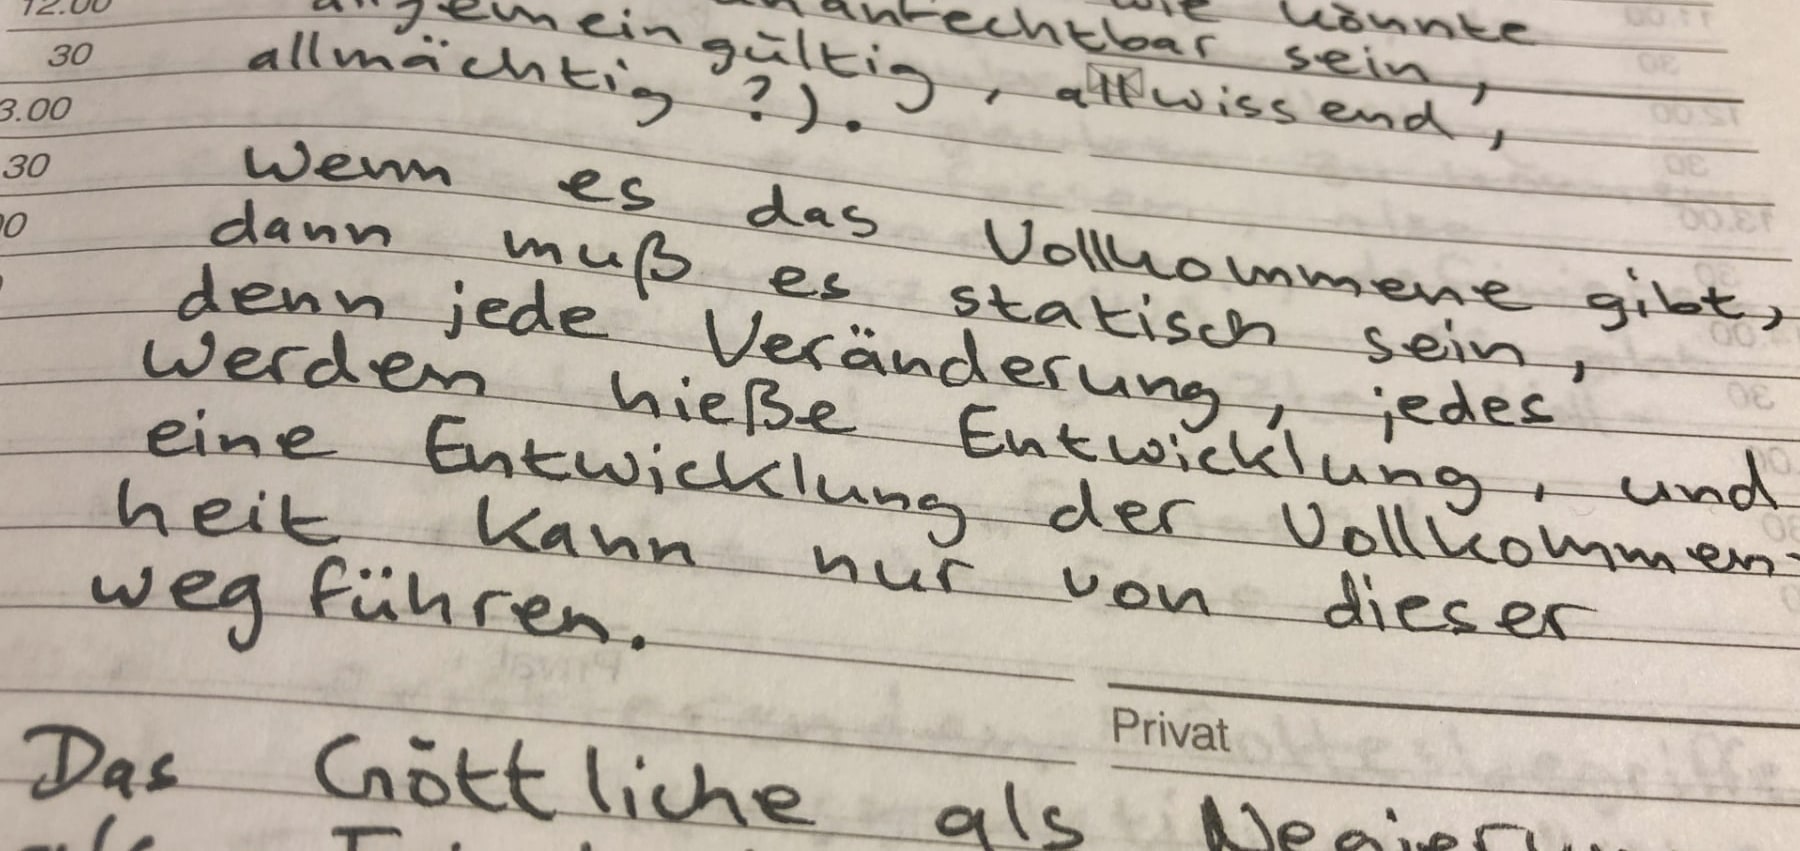 12.00
wie könnte
unanfechtbar sein,
30
allgemeingültig, allwissend,
allmächtig ?).
3.00
30
Wenn es das Vollkommene gibt,
dann muß es statisch sein,
denn jede Veränderung, jedes
Werden hieße Entwicklung, und
eine Entwicklung der Vollkommen-
heit kann nur von dieser
weg führen.
Privat
Das Göttliche als
als